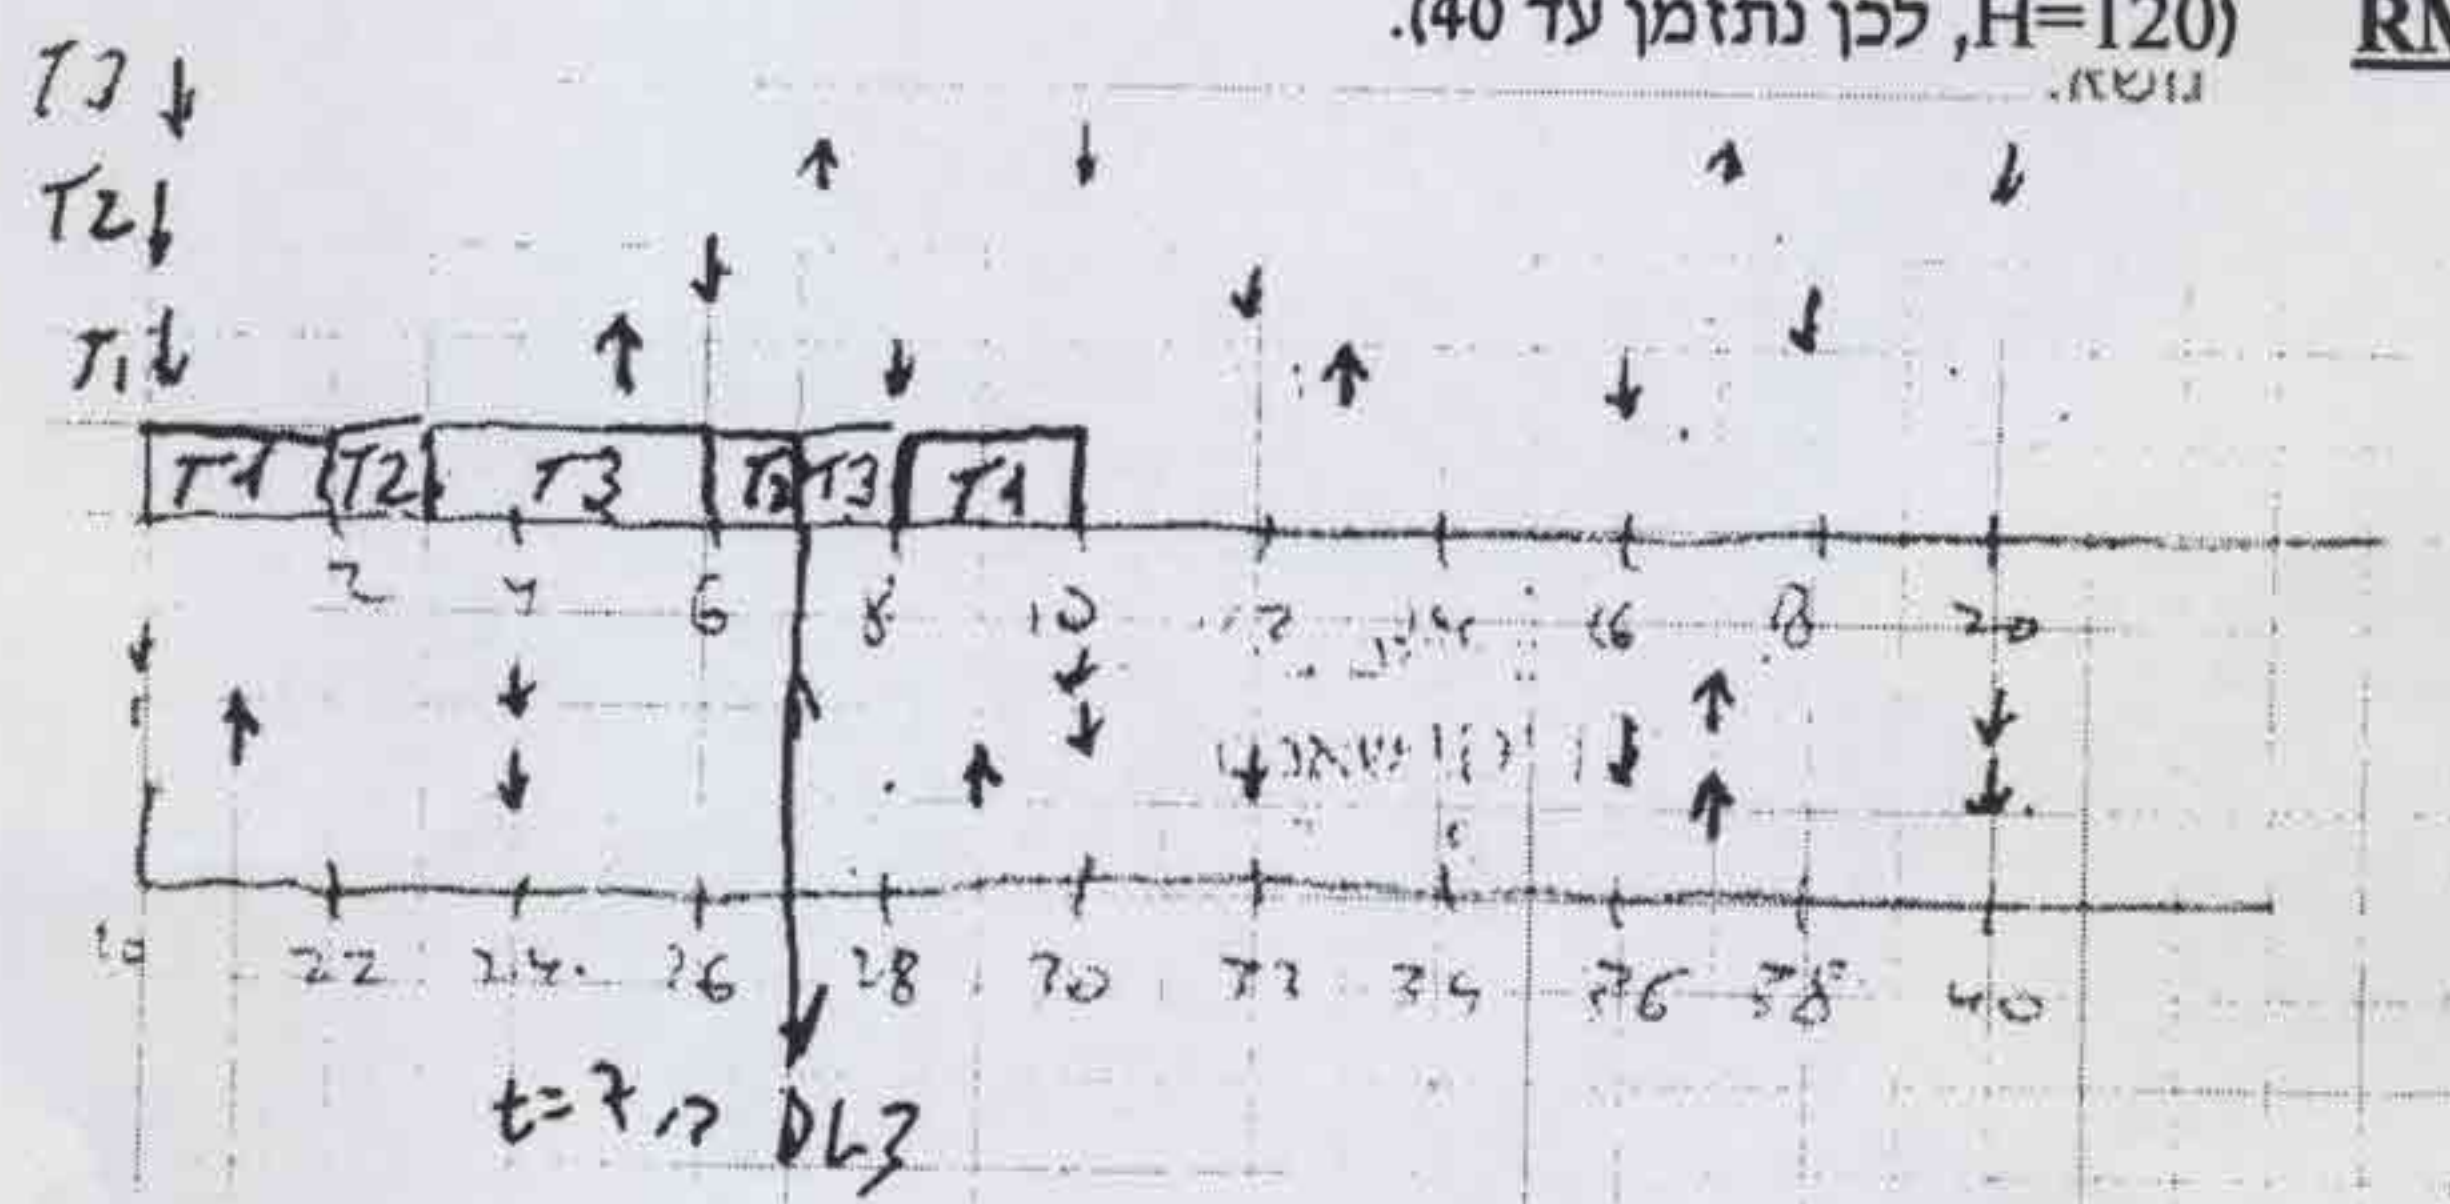 (H=120, לכן נתזמן עד 40). RM
נושא.
T3
T2
T1
T1 T2 T3 T2 T3 T1
2 4 6 8 10 12 14 16 18 20
20 22 24 26 28 30 32 34 36 38 40
t=7 DL3